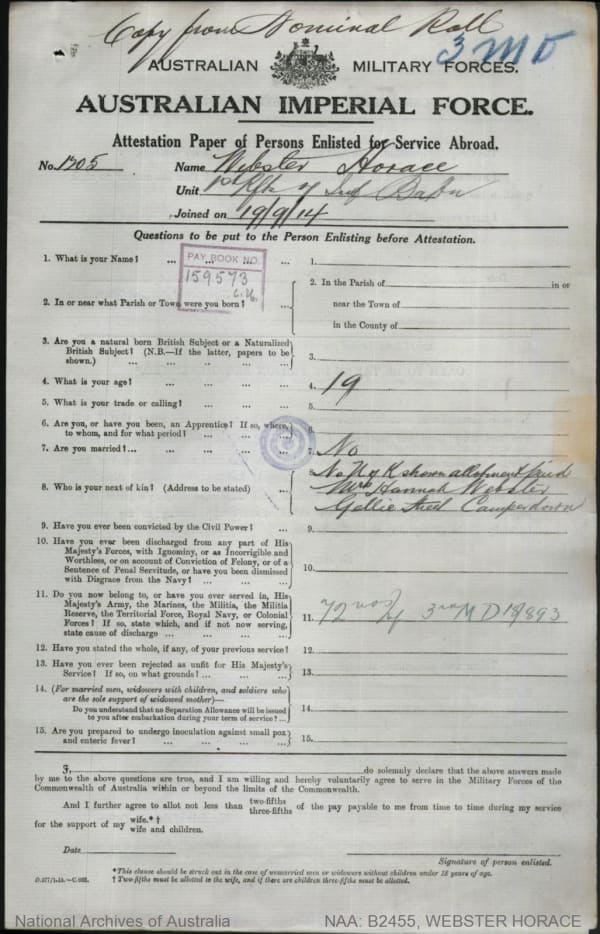 Copy from Nominal Roll
3 MD
AUSTRALIAN MILITARY FORCES.
AUSTRALIAN IMPERIAL FORCE.
Attestation Paper of Persons Enlisted for Service Abroad.
No. 1305 Name Webster Horace
Unit of Inf
Joined on 19/9/14
Questions to be put to the Person Enlisting before Attestation.
1. What is your Name? ... ... ... ... 1.
PAY BOOK NO.
159573
2. In or near what Parish or Town were you born? ...
2. In the Parish of in or
near the Town of
in the County of
3. Are you a natural born British Subject or a Naturalized
British Subject? (N.B.—If the latter, papers to be
shown.) ... ... ... ... 3.
4. What is your age? ... ... ... ... 4. 19
5. What is your trade or calling? ... ... ... 5.
6. Are you, or have you been, an Apprentice? If so, where,
to whom, and for what period? ... ... ... 6.
7. Are you married? ... ... ... ... ... 7. No
8. Who is your next of kin? (Address to be stated) ... 8.
No N of K shown allotment paid
Mrs Hannah Webster
Gellie Street Camperdown
9. Have you ever been convicted by the Civil Power? ... 9.
10. Have you ever been discharged from any part of His
Majesty's Forces, with Ignominy, or as Incorrigible and
Worthless, or on account of Conviction of Felony, or of a
Sentence of Penal Servitude, or have you been dismissed
with Disgrace from the Navy? ... ... ... 10.
11. Do you now belong to, or have you ever served in, His
Majesty's Army, the Marines, the Militia, the Militia
Reserve, the Territorial Force, Royal Navy, or Colonial
Forces? If so, state which, and if not now serving,
state cause of discharge ... ... ... ... 11. 3rd MD
12. Have you stated the whole, if any, of your previous service? 12.
13. Have you ever been rejected as unfit for His Majesty's
Service? If so, on what grounds? ... ... ... 13.
14. (For married men, widowers with children, and soldiers who
are the sole support of widowed mother)—
Do you understand that no Separation Allowance will be issued
to you after embarkation during your term of service? ... 14.
15. Are you prepared to undergo inoculation against small pox
and enteric fever? ... ... ... ... 15.
I, do solemnly declare that the above answers made
by me to the above questions are true, and I am willing and hereby voluntarily agree to serve in the Military Forces of the
Commonwealth of Australia within or beyond the limits of the Commonwealth.
And I further agree to allot not less than two-fifths three-fifths of the pay payable to me from time to time during my service
for the support of my wife.*† wife and children.
Date
Signature of person enlisted.
*This clause should be struck out in the case of unmarried men or widowers without children under 18 years of age.
† Two-fifths must be allotted to the wife, and if there are children three-fifths must be allotted.
National Archives of Australia NAA: B2455, WEBSTER HORACE